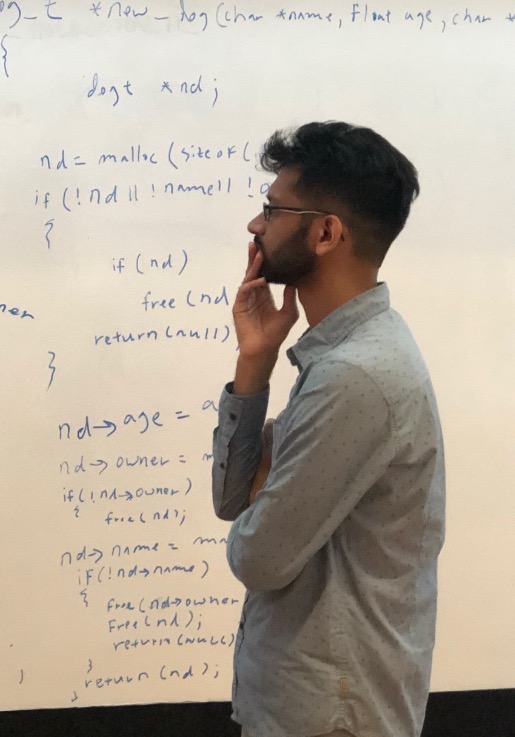 og_t *new_dog(char *name, float age, char *
{
dogt *nd;
nd = malloc (sizeof(
if (!nd || !name || !o
{
if (nd)
free (nd
return (null)
ner
}
nd->age = a
nd->owner = m
if(!nd->owner)
{ free(nd);
nd->name = ma
if(!nd->name)
{
free(nd->owner
free(nd);
return(NULL)
}
return (nd);
}